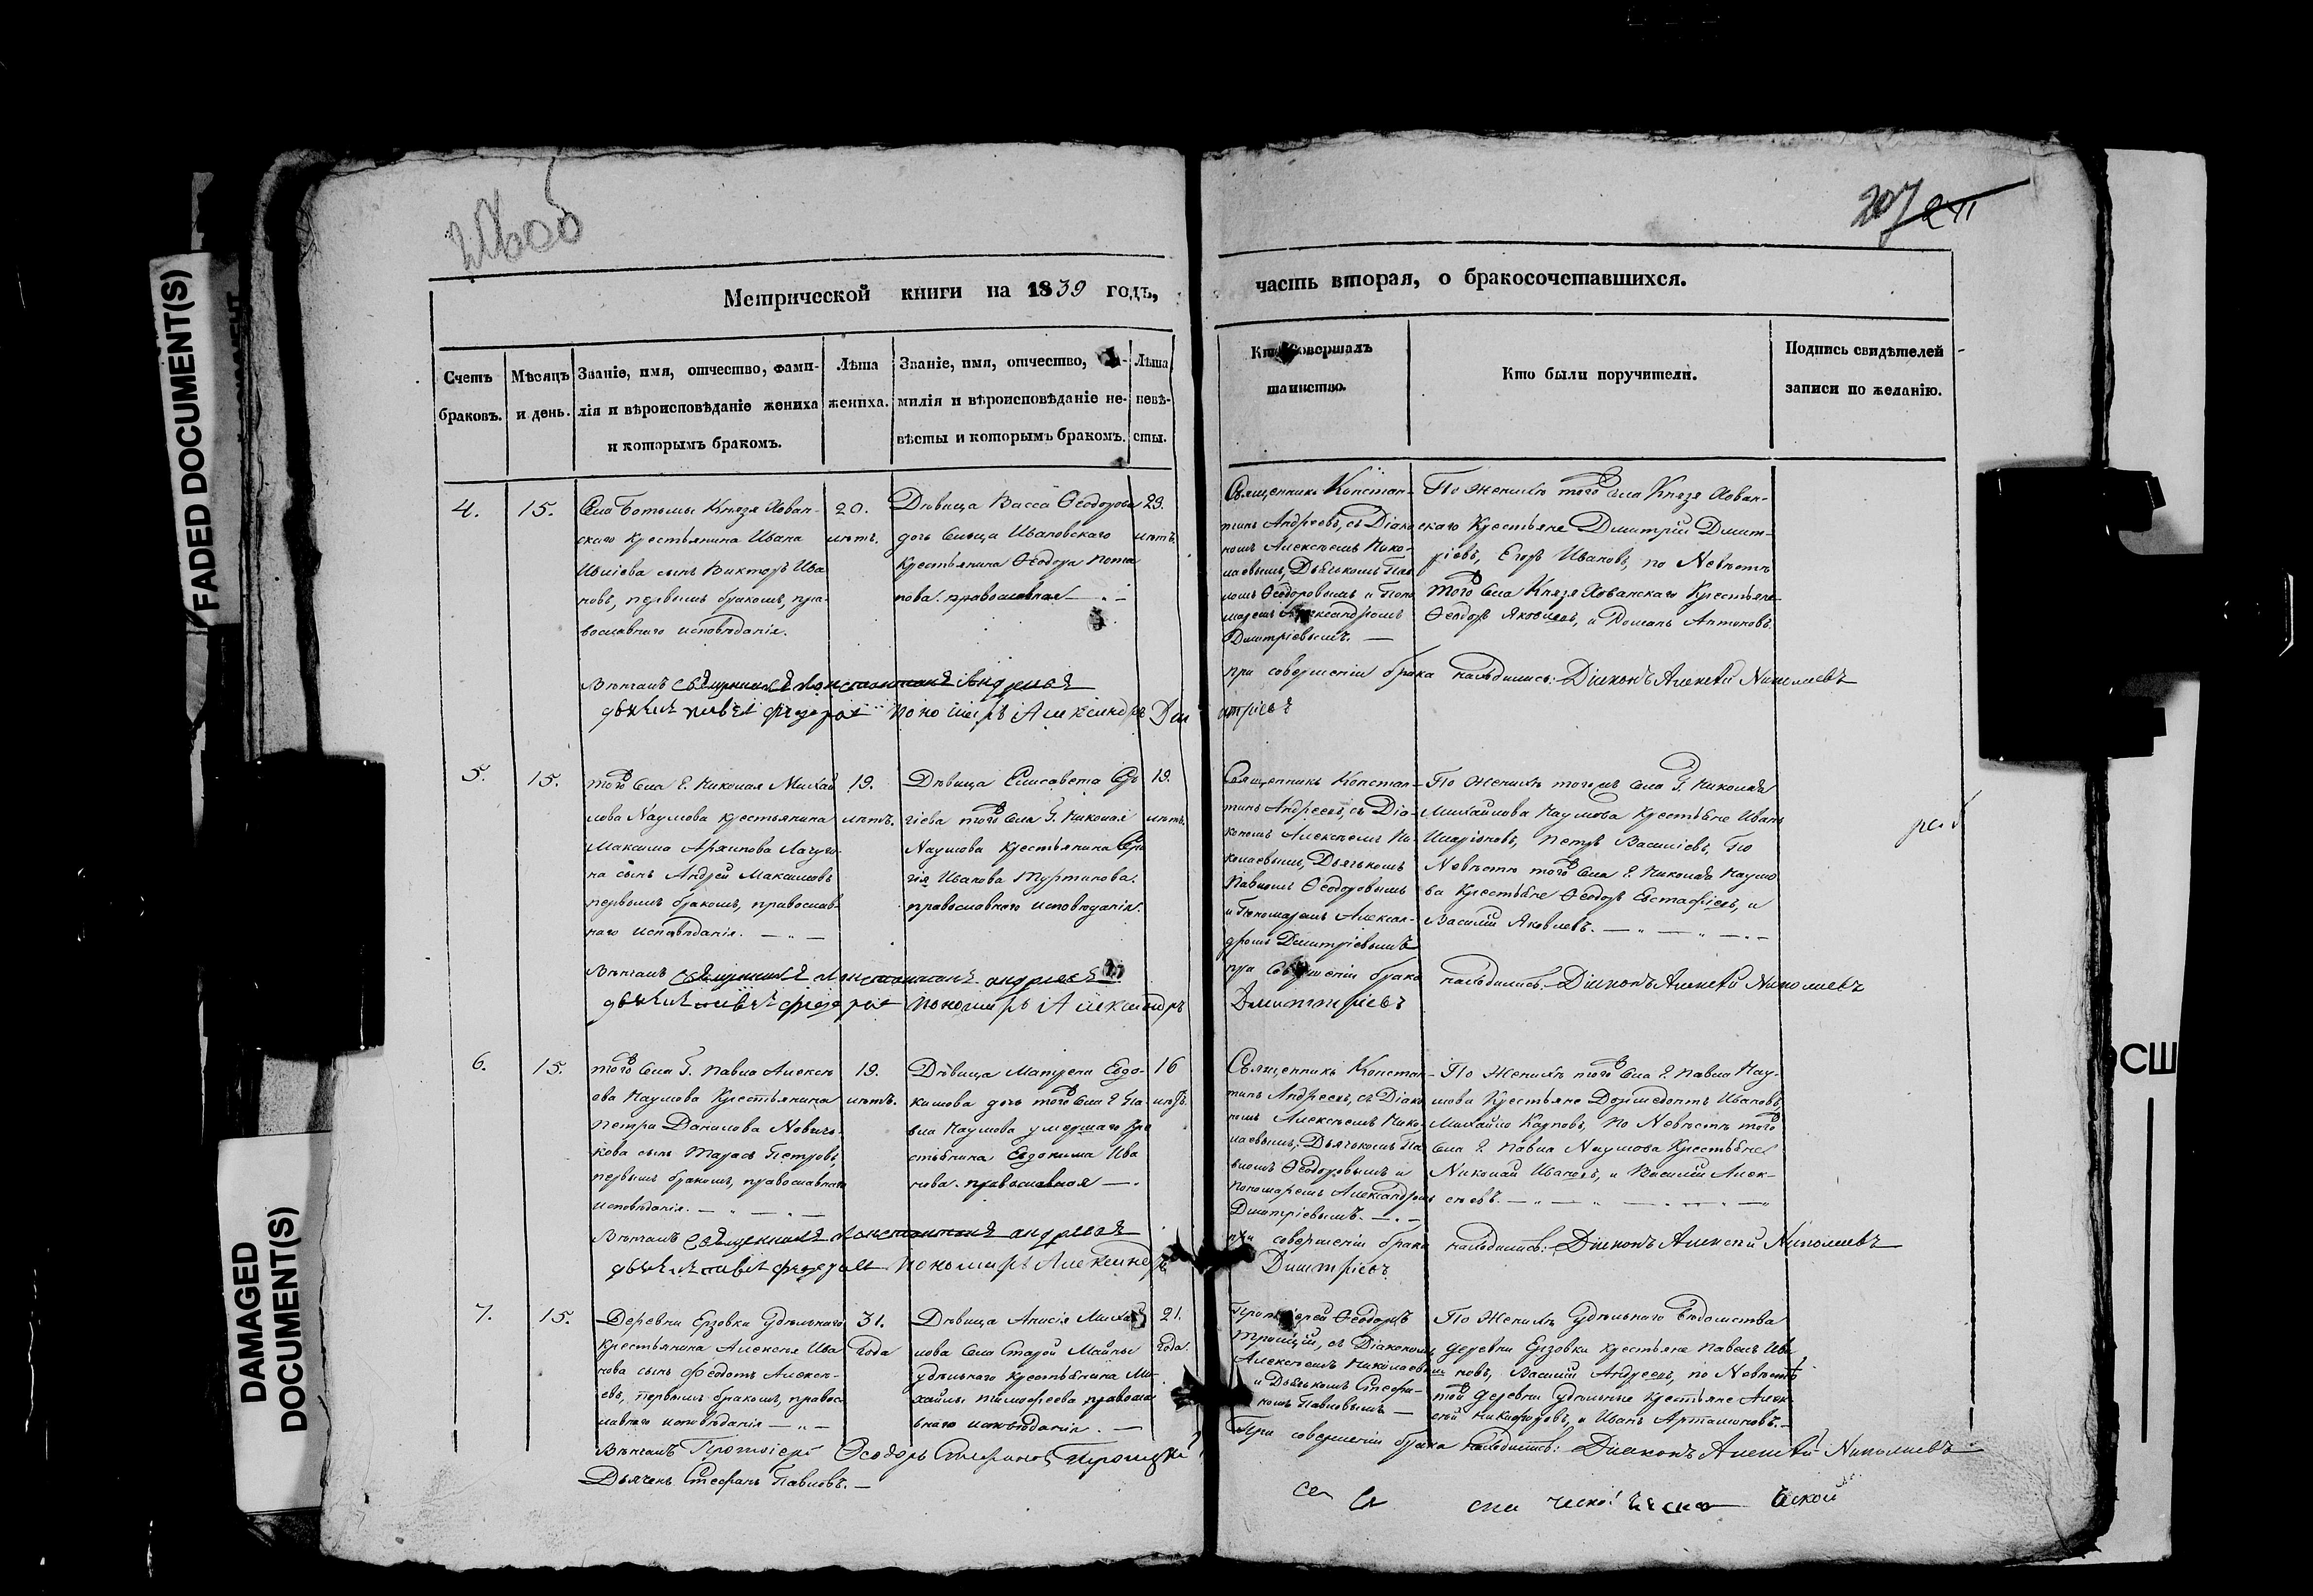 FADED DOCUMENT(S)
DAMAGED
DOCUMENT(S)
207
Метрической книги на 1839 годъ,
часть вторая, о бракосочетавшихся.
Счетъ
браковъ.
Мѣсяцъ
и день.
Званіе, имя, отчество, фами-
лія и вѣроисповѣданіе жениха
и которымъ бракомъ.
Лѣта
жениха.
Званіе, имя, отчество,
милія и вѣроисповѣданіе не-
вѣсты и которымъ бракомъ.
Лѣта
невѣ-
сты.
Кто совершалъ
таинство.
Кто были поручители.
Подпись свидѣтелей
записи по желанію.
4.
15.
Села Ботьмы Князя Хован-
скаго Крестьянина Ивана
сынъ Викторъ Ива
новъ, первымъ бракомъ, пра-
вославнаго исповѣданія.
20.
лѣтъ.
Дѣвица Васса Ѳеодорова
дочь Ивановскаго
Крестьянина Ѳеодора Пота
пова. православная
23.
лѣтъ.
Священникъ Констан-
тинъ Андреевъ, съ Діако
номъ Алексѣемъ Нико-
лаевымъ, Дьячькомъ Пав
ломъ Ѳеодоровымъ и Поно
маремъ Александромъ
Дмитріевымъ.
По Женихѣ того села Князя Хован-
скаго Крестьяне Дмитрій Дмит-
ріевъ, Егоръ Ивановъ, по Невѣстѣ
того села Князя Хованскаго Крестьяне
Ѳеодоръ Яковлевъ, и Романъ Антоновъ.
Вѣнчалъ священникъ Константинъ Андреевъ
при совершеніи брака находились: Діаконъ Алексѣй Николаевъ
дьячекъ Павелъ Федоровъ Пономарь Александръ Дм
итріевъ
5.
15.
того села Г. Николая Михай
лова Наумова крестьянина
Максима Архипова Лачуги-
на сынъ Андрей Максимовъ
первымъ бракомъ, православ-
наго исповѣданія.
19.
лѣтъ.
Дѣвица Елисавета Сер
гіева того села Г. Николая
Наумова крестьянина Сер
гія Иванова Туртикова.
православнаго исповѣданія.
19.
лѣтъ.
Священникъ Констан-
тинъ Андреевъ, съ Діа-
кономъ Алексѣемъ Ни-
колаевымъ, Дьячькомъ
Павломъ Ѳеодоровымъ
и Пономаремъ Алексан-
дромъ Дмитріевымъ
По Женихѣ тогожъ села Г. Николая
Михайлова Наумова Крестьяне Иванъ
Иларіоновъ, Петръ Васильевъ, По
Невѣстѣ того села Г. Николая Наумо
ва Крестьяне Ѳеодоръ Евстафіевъ, и
Василій Яковлевъ.
Вѣнчалъ священникъ Константинъ Андреевъ
при совершеніи брака находились: Діаконъ Алексѣй Николаевъ
дьячекъ Павелъ Федоровъ Пономарь Александръ
Дмитріевъ
6.
15.
того села Г. Павла Алексѣ
ева Наумова Крестьянина
Петра Данилова Новичь-
кова сынъ Тарасъ Петровъ,
первымъ бракомъ, православнаго
исповѣданія.
19.
лѣтъ.
Дѣвица Матрена Евдо-
кимова дочь того села Г. Па-
вла Наумова умершаго кре
стьянина Евдокима Ива
нова. православная
16
лѣтъ.
Священникъ Констан-
тинъ Андреевъ, съ Діако
номъ Алексѣемъ Нико-
лаевымъ, Дьячькомъ Па
вломъ Ѳеодоровымъ и
Пономаремъ Александромъ
Дмитріевымъ.
По Женихѣ того села Г. Павла Нау-
мова Крестьяне Дормедонтъ Ивановъ,
Михайло Карповъ, по Невѣстѣ того
села Г. Павла Наумова Крестьяне
Николай Ивановъ, и Василій Алек-
сѣевъ.
Вѣнчалъ священникъ Константинъ Андреевъ
при совершеніи брака находились: Діаконъ Алексѣй Николаевъ
дьячекъ Павелъ Федоровъ Пономарь Александръ
Дмитріевъ
7.
15.
Деревни Ерзовки Удѣльнаго
Крестьянина Алексѣя Ива
нова сынъ Федотъ Алексѣ-
евъ, первымъ бракомъ, правос-
лавнаго исповѣданія
31.
года
Дѣвица Анисія Михай
лова села Старой Майны
удѣльнаго крестьянина Ми-
хайлы Тимофеева правосла
внаго исповѣданія.
21.
года.
Протоіерей Ѳеодоръ
Троицкій, съ Діакономъ
Алексѣемъ Николаевымъ
и Дьячькомъ Стефа-
номъ Павловымъ
По Женихѣ Удѣльнаго Вѣдомства
деревни Ерзовки крестьяне Павелъ Ива
новъ, Василій Андреевъ, по Невѣстѣ
той деревни удѣльные крестьяне Алек-
сѣй Никифоровъ, и Иванъ Артамоновъ.
Вѣнчалъ Протоіерей Ѳеодоръ Стефановъ Троицкій
При совершеніи брака находились: Діаконъ Алексѣй Николаевъ
Дьячекъ Стефанъ Павловъ.